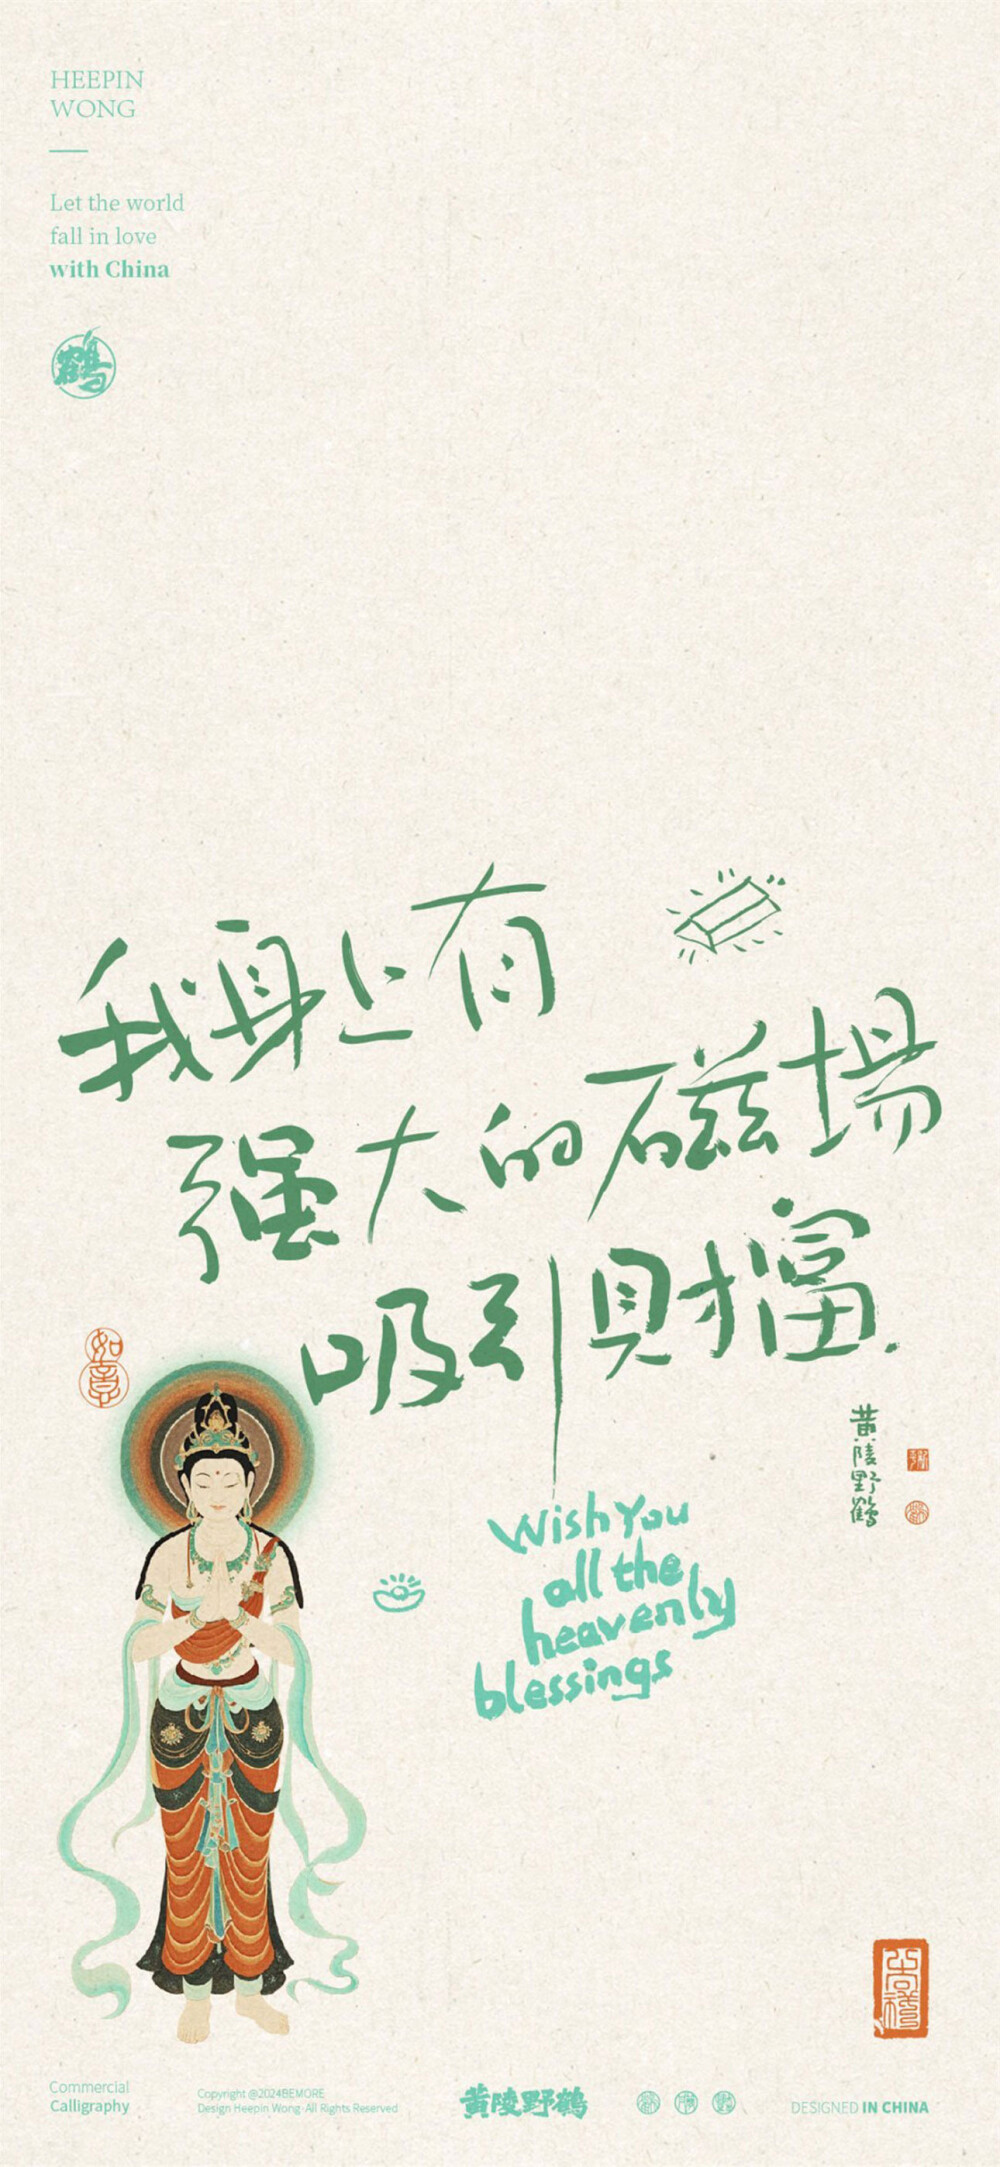 HEEPIN
WONG
Let the world
fall in love
with China
鶴
我身上有
强大的磁場
吸引財富.
如意
黄陵野鶴
Wish You
all the
heavenly
blessings
Commercial
Calligraphy
Copyright @2024BEMORE
Design Heepin Wong-All Rights Reserved
黄陵野鶴
DESIGNED IN CHINA